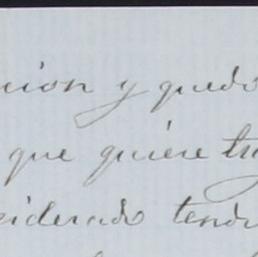 cion y quedo
que quiere tra
siderado tendr